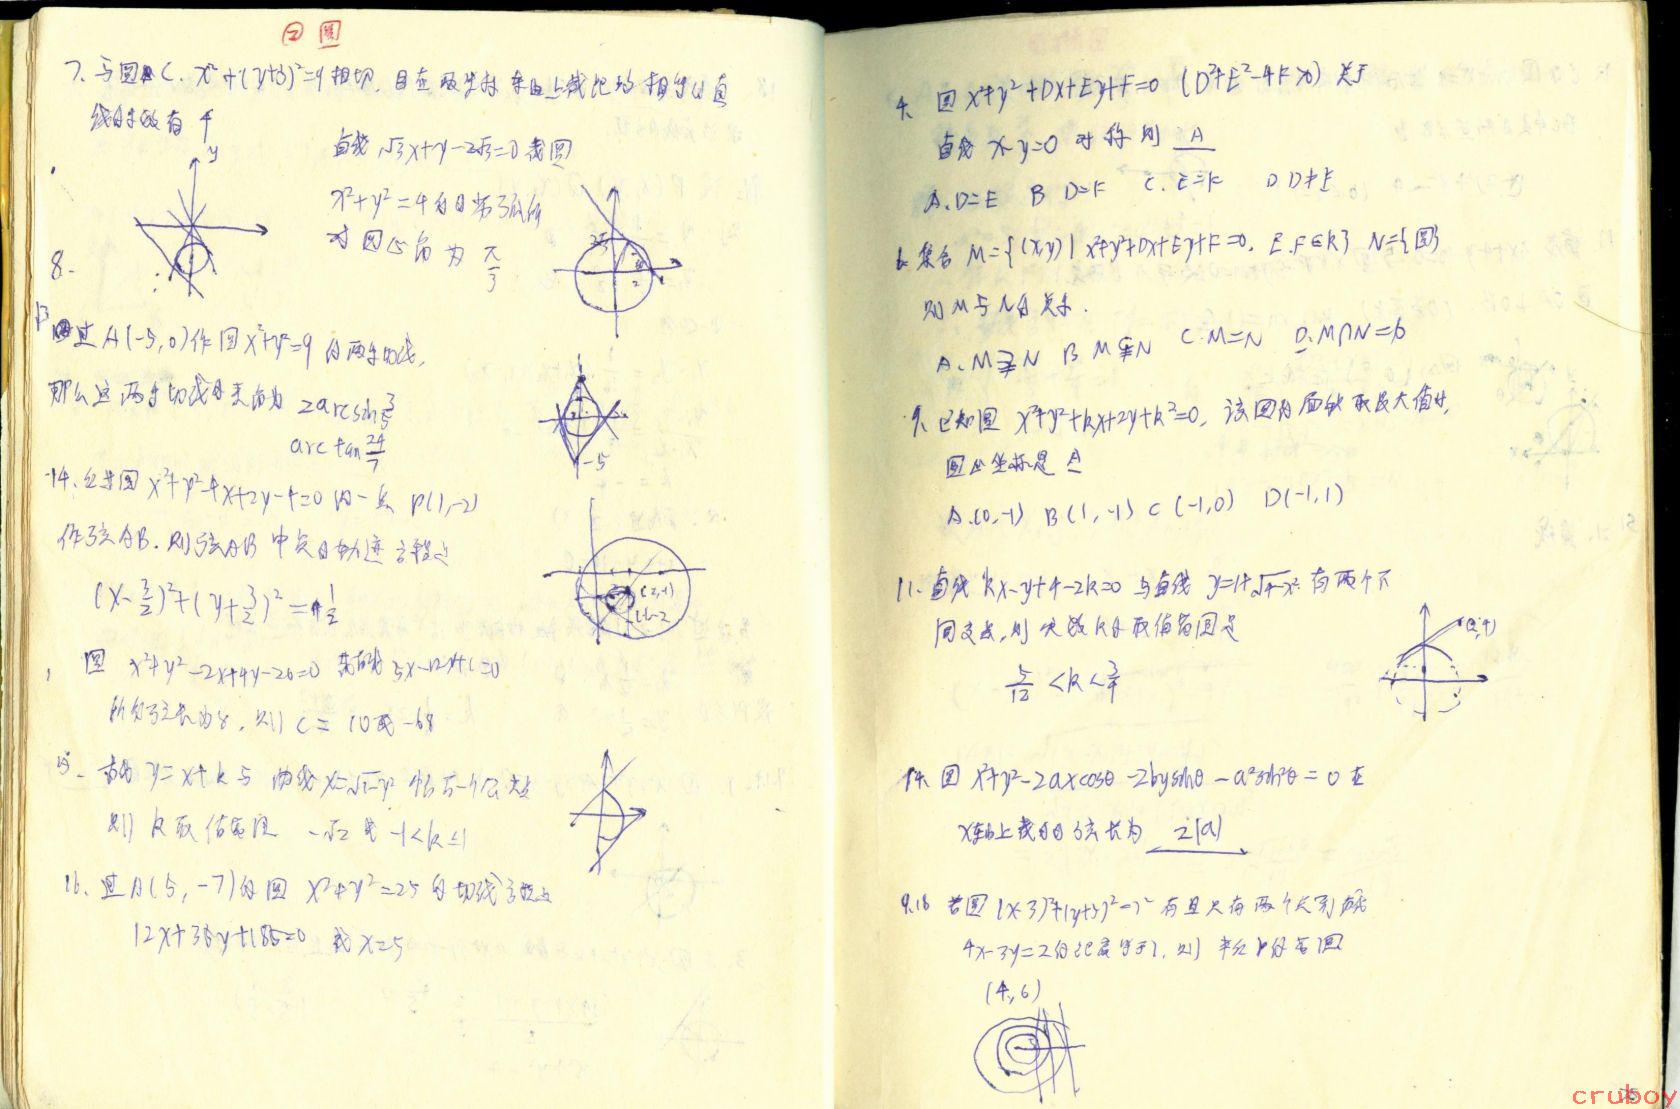 圆
7. 与圆 C. x²+(y+3)²=9 相切, 且在两坐标轴上截距的相等的直
线的条数有 4
y
直线 √3x+y-2√3=0 截圆
x²+y²=4 的劣弧所
对圆心角为 π/3
8.
13
过 A(-5,0) 作圆 x²+y²=9 的两条切线,
那么这两条切线的夹角为 2arcsin 3/5
arctan 24/7
-5
14. 圆 x²+y²-4x+2y-4=0 内一点 P(1,-2)
作弦AB. 则弦AB 中点的轨迹方程是
(x-3/2)²+(y+3/2)²=1/2
(2,-1)
圆 x²+y²-2x+4y-20=0
所得弦长为8, 则 C= 10或-68
直线 y=x+k 与曲线 x=√1-y² 恰有一个公共点
则 k 取值范围 -√2 或 -1<k≤1
16. 过A(5,-7)的圆 x²+y²=25 的切线方程是
12x+35y+185=0 或 x=5
4. 圆 x²+y²+Dx+Ey+F=0 (D²+E²-4F>0) 关于
直线 x-y=0 对称则 A
A. D=E B D=F C. E=F D D≠E
6. 集合 M={(x,y)| x²+y²+Dx+Ey+F=0, E.F∈R} N={圆}
则M与N的关系.
A. M⫌N B M⫋N C. M=N D. M∩N=φ
9. 已知圆 x²+y²+kx+2y+k²=0, 该圆的面积取最大值时,
圆心坐标是 A
A. (0,-1) B(1,-1) C(-1,0) D(-1,1)
11. 直线 kx-y+4-2k=0 与直线 y=1+√4-x² 有两个不
同交点, 则实数k的取值范围是
5/12 <k< 3/4
(2,4)
14. 圆 x²+y²-2axcosθ-2bysinθ-a²sin²θ=0 在
x轴上截的弦长为 2|a|
9.18 若圆 (x-3)²+(y+5)²=r² 有且只有两个点到直线
4x-3y=2的距离等于1, 则半径r的范围
(4,6)
cruboy